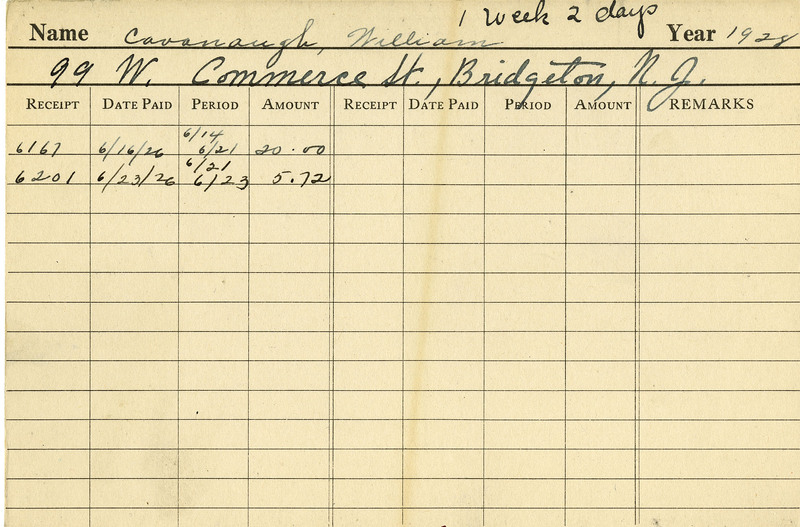 1 week 2 days
Name Cavanaugh, William Year 1928
99 W. Commerce St., Bridgeton, N. J.
RECEIPT DATE PAID PERIOD AMOUNT RECEIPT DATE PAID PERIOD AMOUNT REMARKS
6/14
6167 6/16/26 6/21 20.00
6/21
6201 6/23/26 6/23 5.72